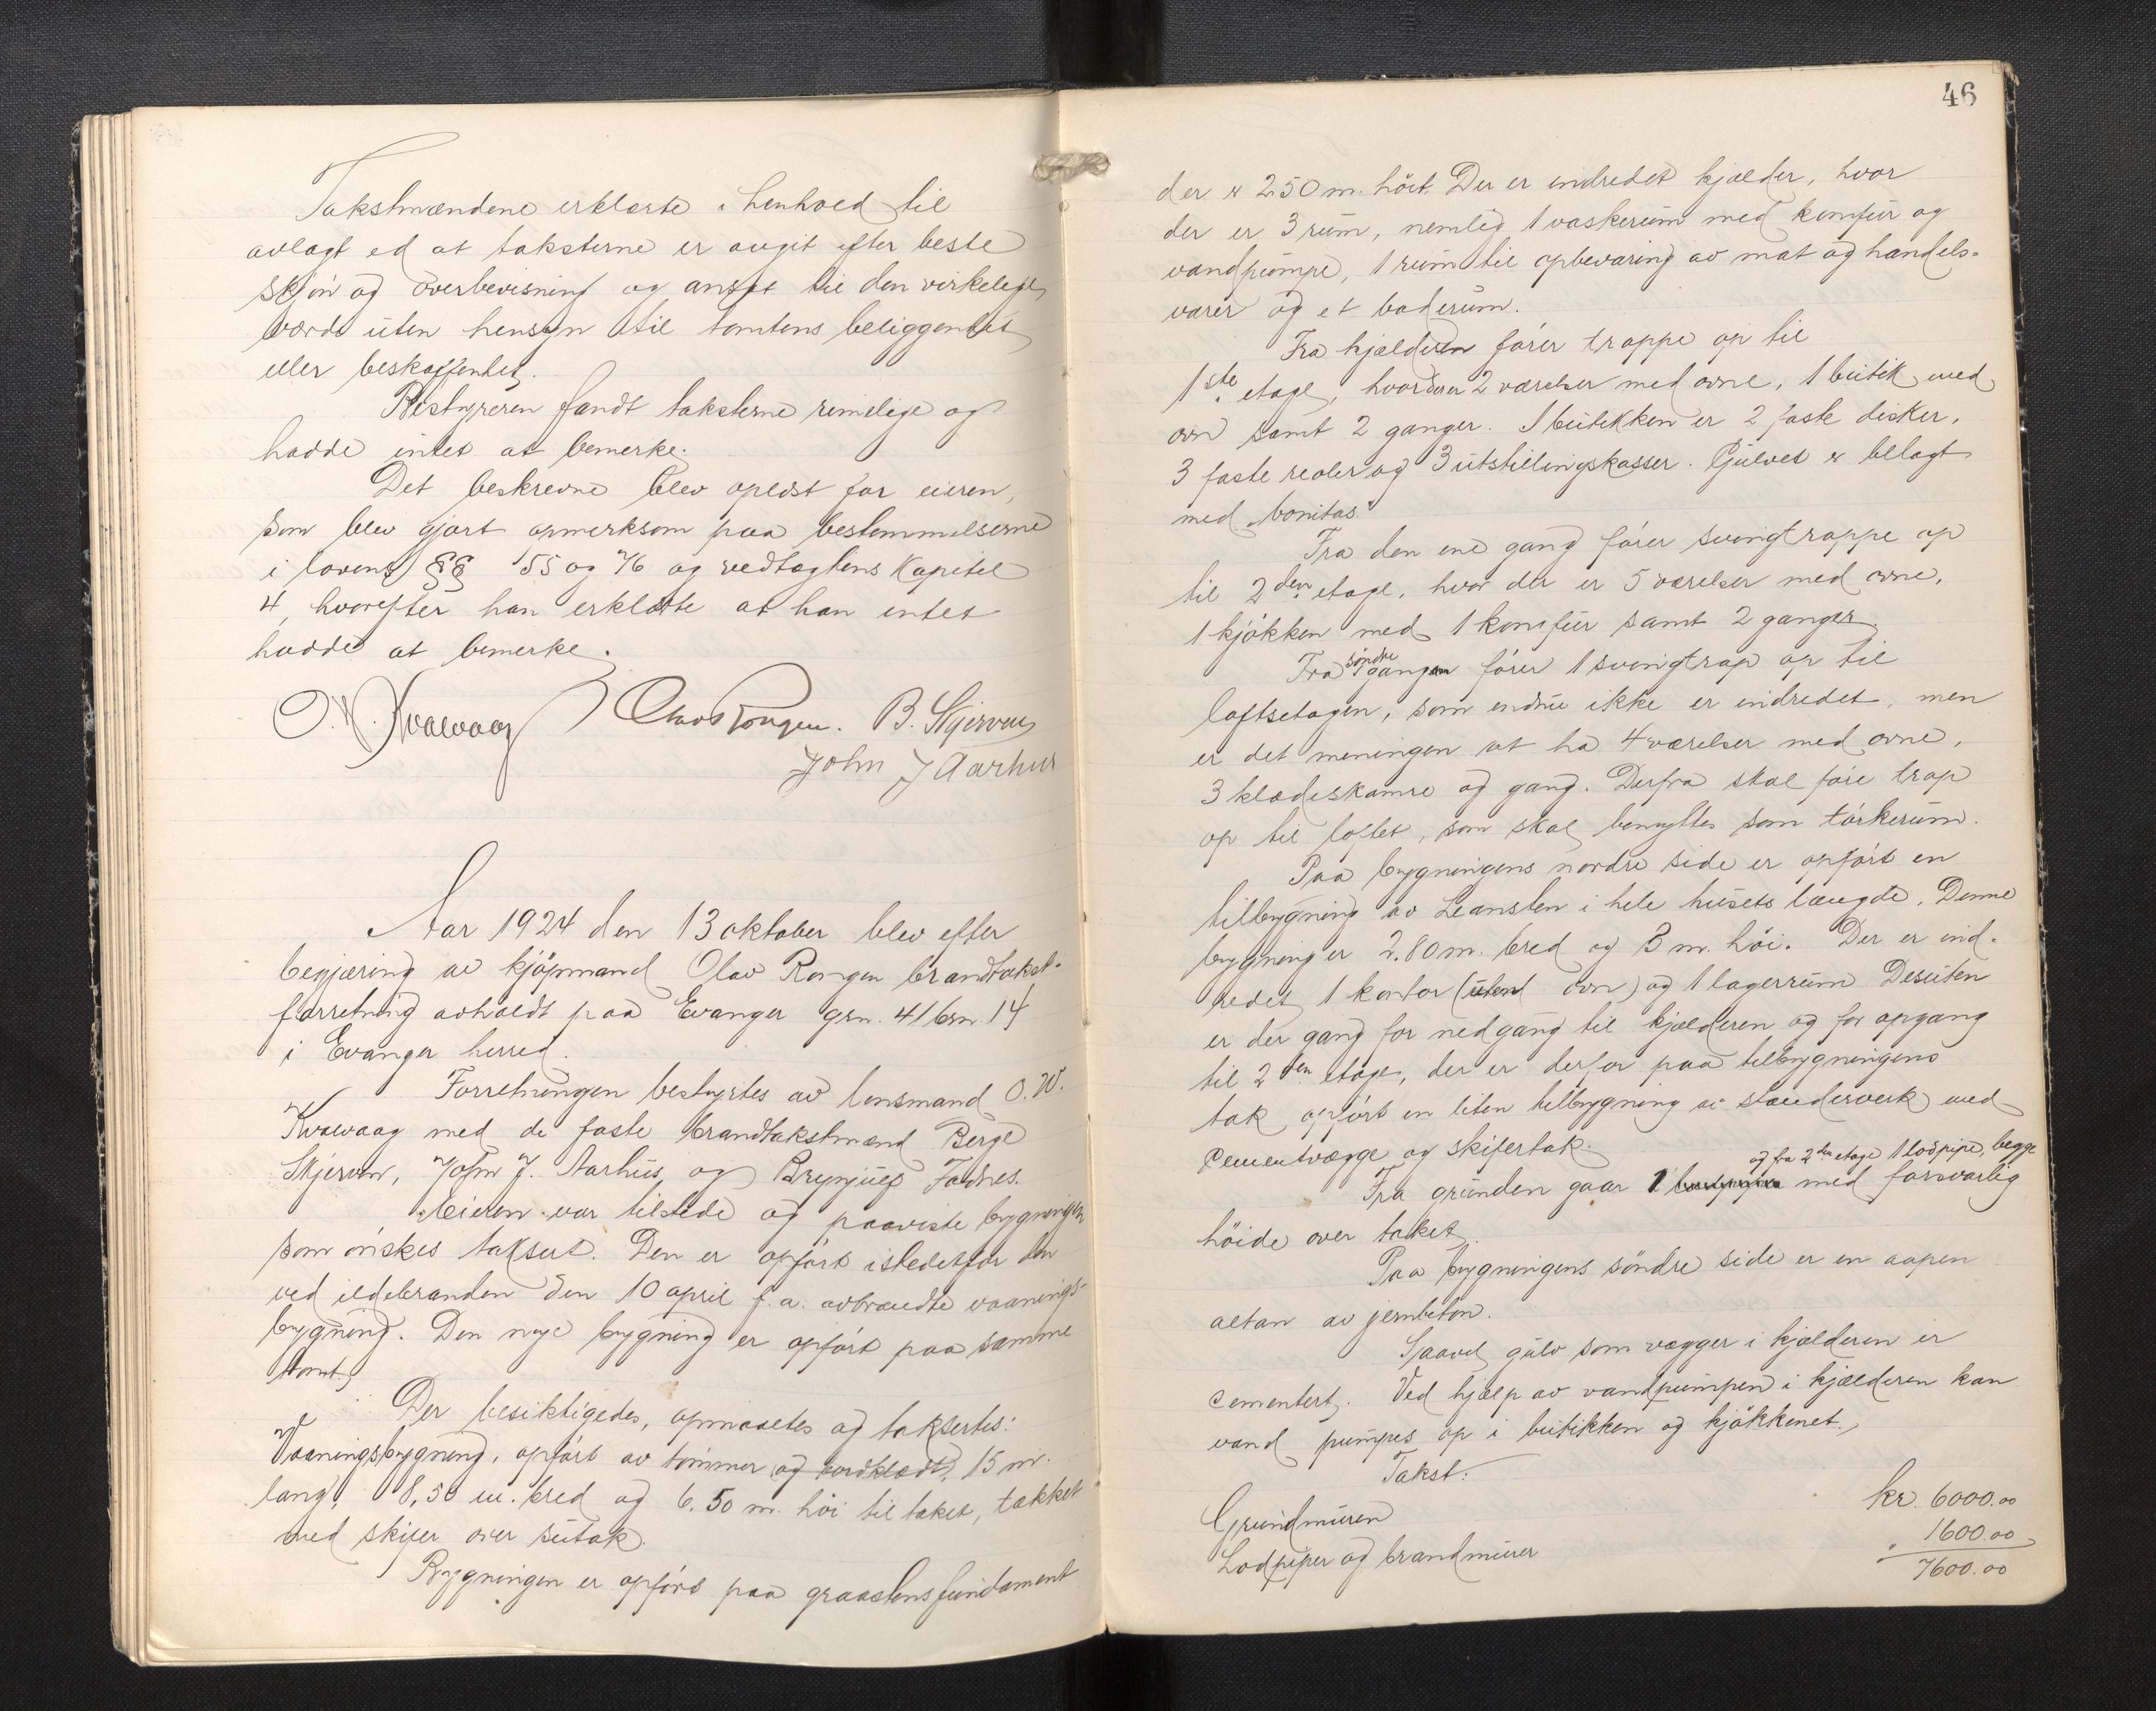 Takstmændene erklærte i henhold til
avlagt ed at taksterne er avgit efter beste
skjön og overbevisning og ansat til den virkelige
værdi uten hensyn til tomtens beliggenhet
eller beskaffenhet.
Bestyreren fandt taksterne rimelige og
hadde intet at bemerke.
Det beskrevne blev oplæst for eieren,
som blev gjort opmerksom paa bestemmelserne
i lovens §§ 55 og 76 og vedtægtens Kapitel
4, hvorefter han erklærte at han intet
hadde at bemerke.
O. W. Kvalvaag Olav Rongen. B. Skjerven
John J Aarhus
Aar 1924 den 13 oktober blev efter
begjæring av kjöpmand Olav Rongen brandtakst-
forretning avholdt paa Evanger grn. 41 brn. 14
i Evanger herred.
Forretningen bestyrtes av lensmand O. W.
Kvalvaag med de faste brandtakstmænd Berge
Skjerven, John J. Aarhus og Brynjulf Fadnes.
Eieren var tilstede og paaviste bygningen
som önskes taksert. Den er opfört istedetfor den
ved ildebranden den 10 april f. a. avbrændte vaanings-
bygning. Den nye bygning er opfört paa samme
tomt.
Der besiktigedes, opmaaltes og taksertes:
Vaaningsbygning, opfört av tömmer og bordklædt, 15 m.
lang, 8,50 m. bred og 6.50 m. höi til taket, tækket
med skifer over sutak.
Bygningen er opfört paa graastensfundament
46
der er 2.50 m. höit. Der er indredet kjælder, hvor
der er 3 rum, nemlig 1 vaskerum med komfur og
vandpumpe, 1 rum til opbevaring av mat og handels-
varer og et baderum.
Fra kjælderen förer trappe op til
1ste etage, hvor der er 2 værelser med ovne, 1 butik med
ovn samt 2 ganger. I butikken er 2 faste disker,
3 faste reoler og 3 utstillingskasser. Gulvet er belagt
med "bonitas."
Fra den ene gang förer svingtrappe op
til 2den etage, hvor der er 5 værelser med ovne,
1 kjökken med 1 komfur samt 2 ganger.
Fra söndre gangen förer 1 svingtrap op til
loftsetagen, som endnu ikke er indredet, men
er det meningen at ha 4 værelser med ovne,
3 klædeskamre og gang. Derfra skal före trap
op til loftet, som skal benyttes som törkerum.
Paa bygningens nordre side er opfört en
tilbygning av Leansten i hele husets længde. Denne
bygning er 2.80 m. bred og 3 m. höi. Der er ind-
redet 1 kontor (uten ovn) og 1 lagerrum. Desuten
er der gang for nedgang til kjælderen og for opgang
til 2den etage, der er derfor paa tilbygningens
tak opfört en liten tilbygning av stænderverk med
cementvægge og skifertak.
og fra 2den etage 1 lodpipe, begge
Fra grunden gaar 1 lodpipe med forsvarlig
höide over taket.
Paa bygningens söndre side er en aapen
altan av jernbeton.
Saavel gulv som vægger i kjælderen er
cementert. Ved hjælp av vandpumpen i kjælderen kan
vand pumpes op i butikken og kjökkenet.
Takst:
Grundmuren kr. 6000.00
Lodpiper og brandmurer " 1600.00
7600.00